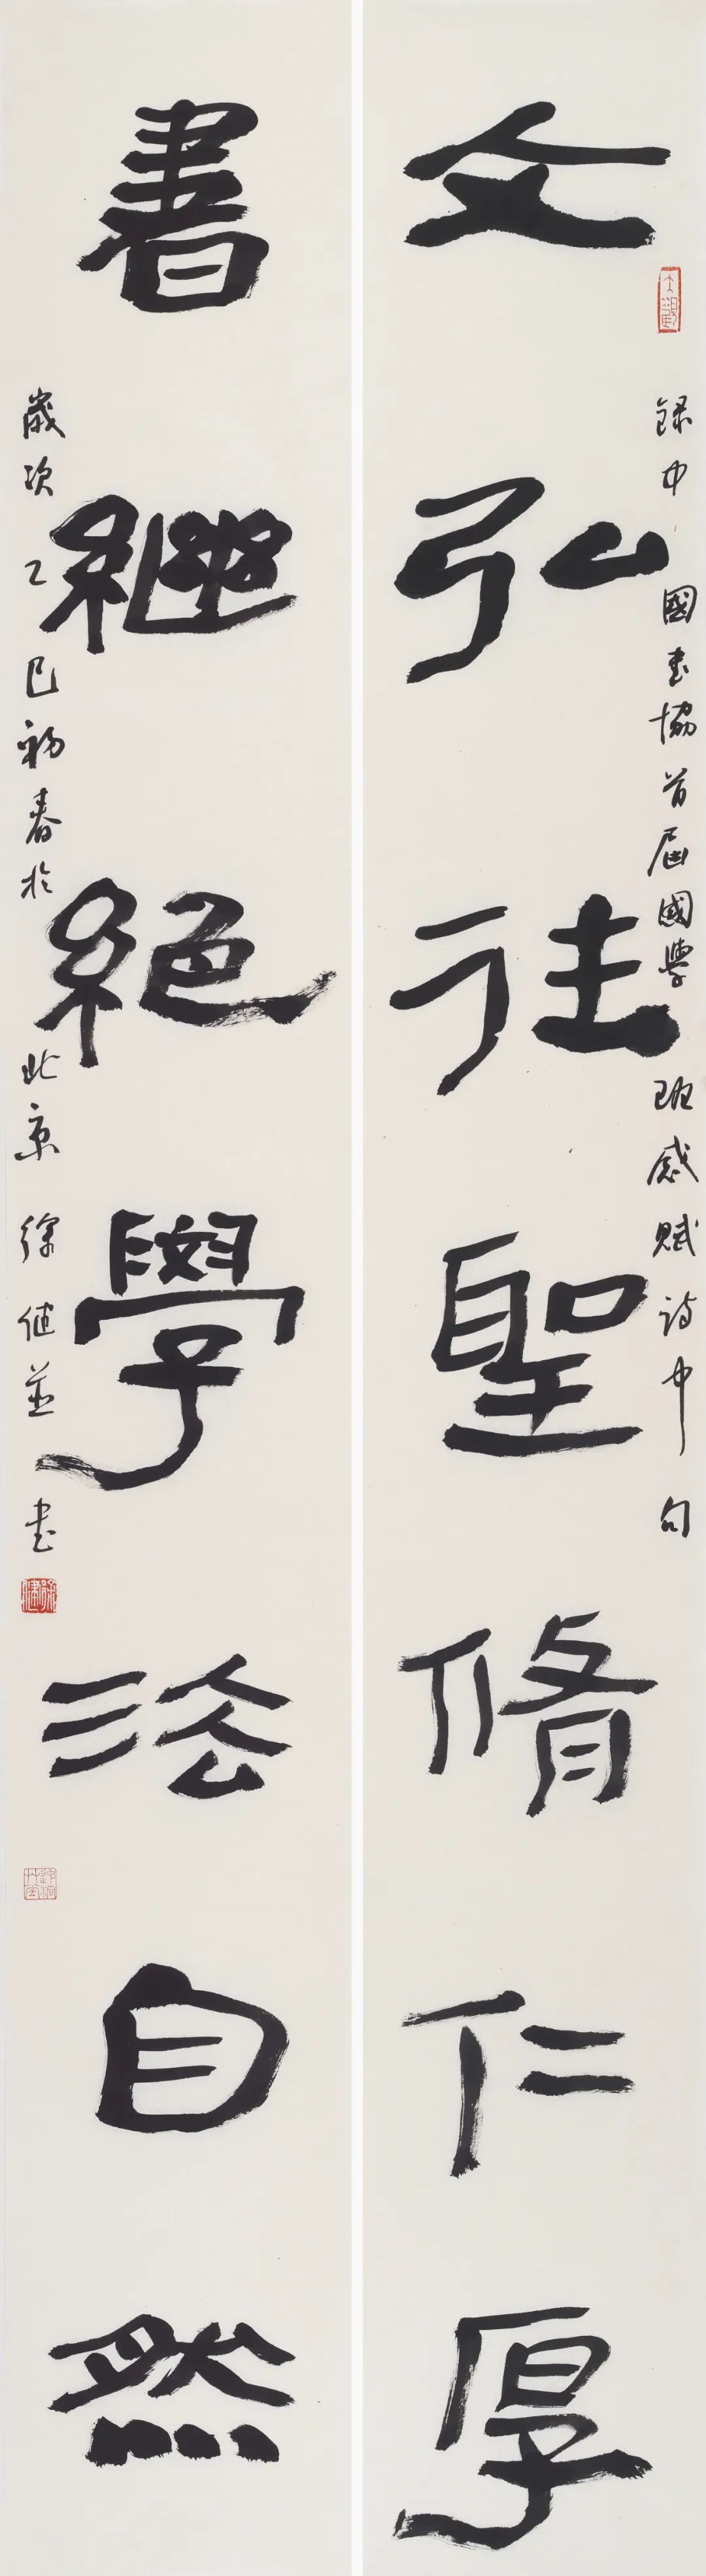 文弘往聖脩仁厚
録中國書協首屆國學班感賦詩中句
書繼絕學法自然
歲次乙巳初春於北京 徐健並書
徐健